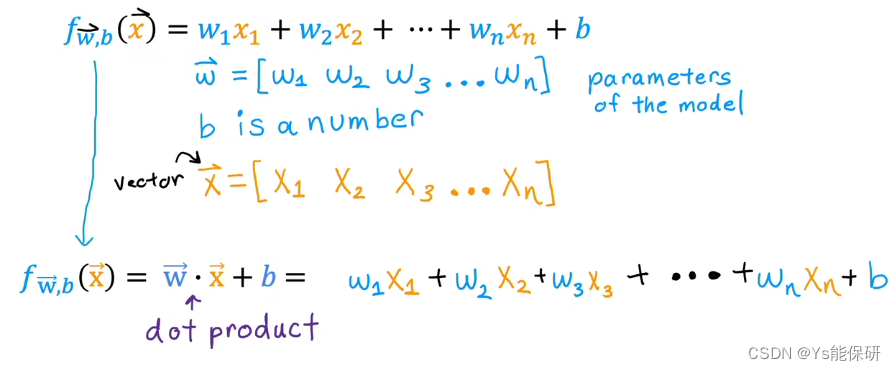 f_{\vec{w},b}(\vec{x}) = w₁x₁ + w₂x₂ + ⋯ + wₙxₙ + b
\vec{w} = [w₁ w₂ w₃ ... wₙ] parameters of the model
b is a number
vector \vec{x} = [x₁ x₂ x₃ ... xₙ]
f_{\vec{w},b}(\vec{x}) = \vec{w} · \vec{x} + b = w₁x₁ + w₂x₂ + w₃x₃ + ⋯ + wₙxₙ + b
dot product
CSDN @Ys能保研